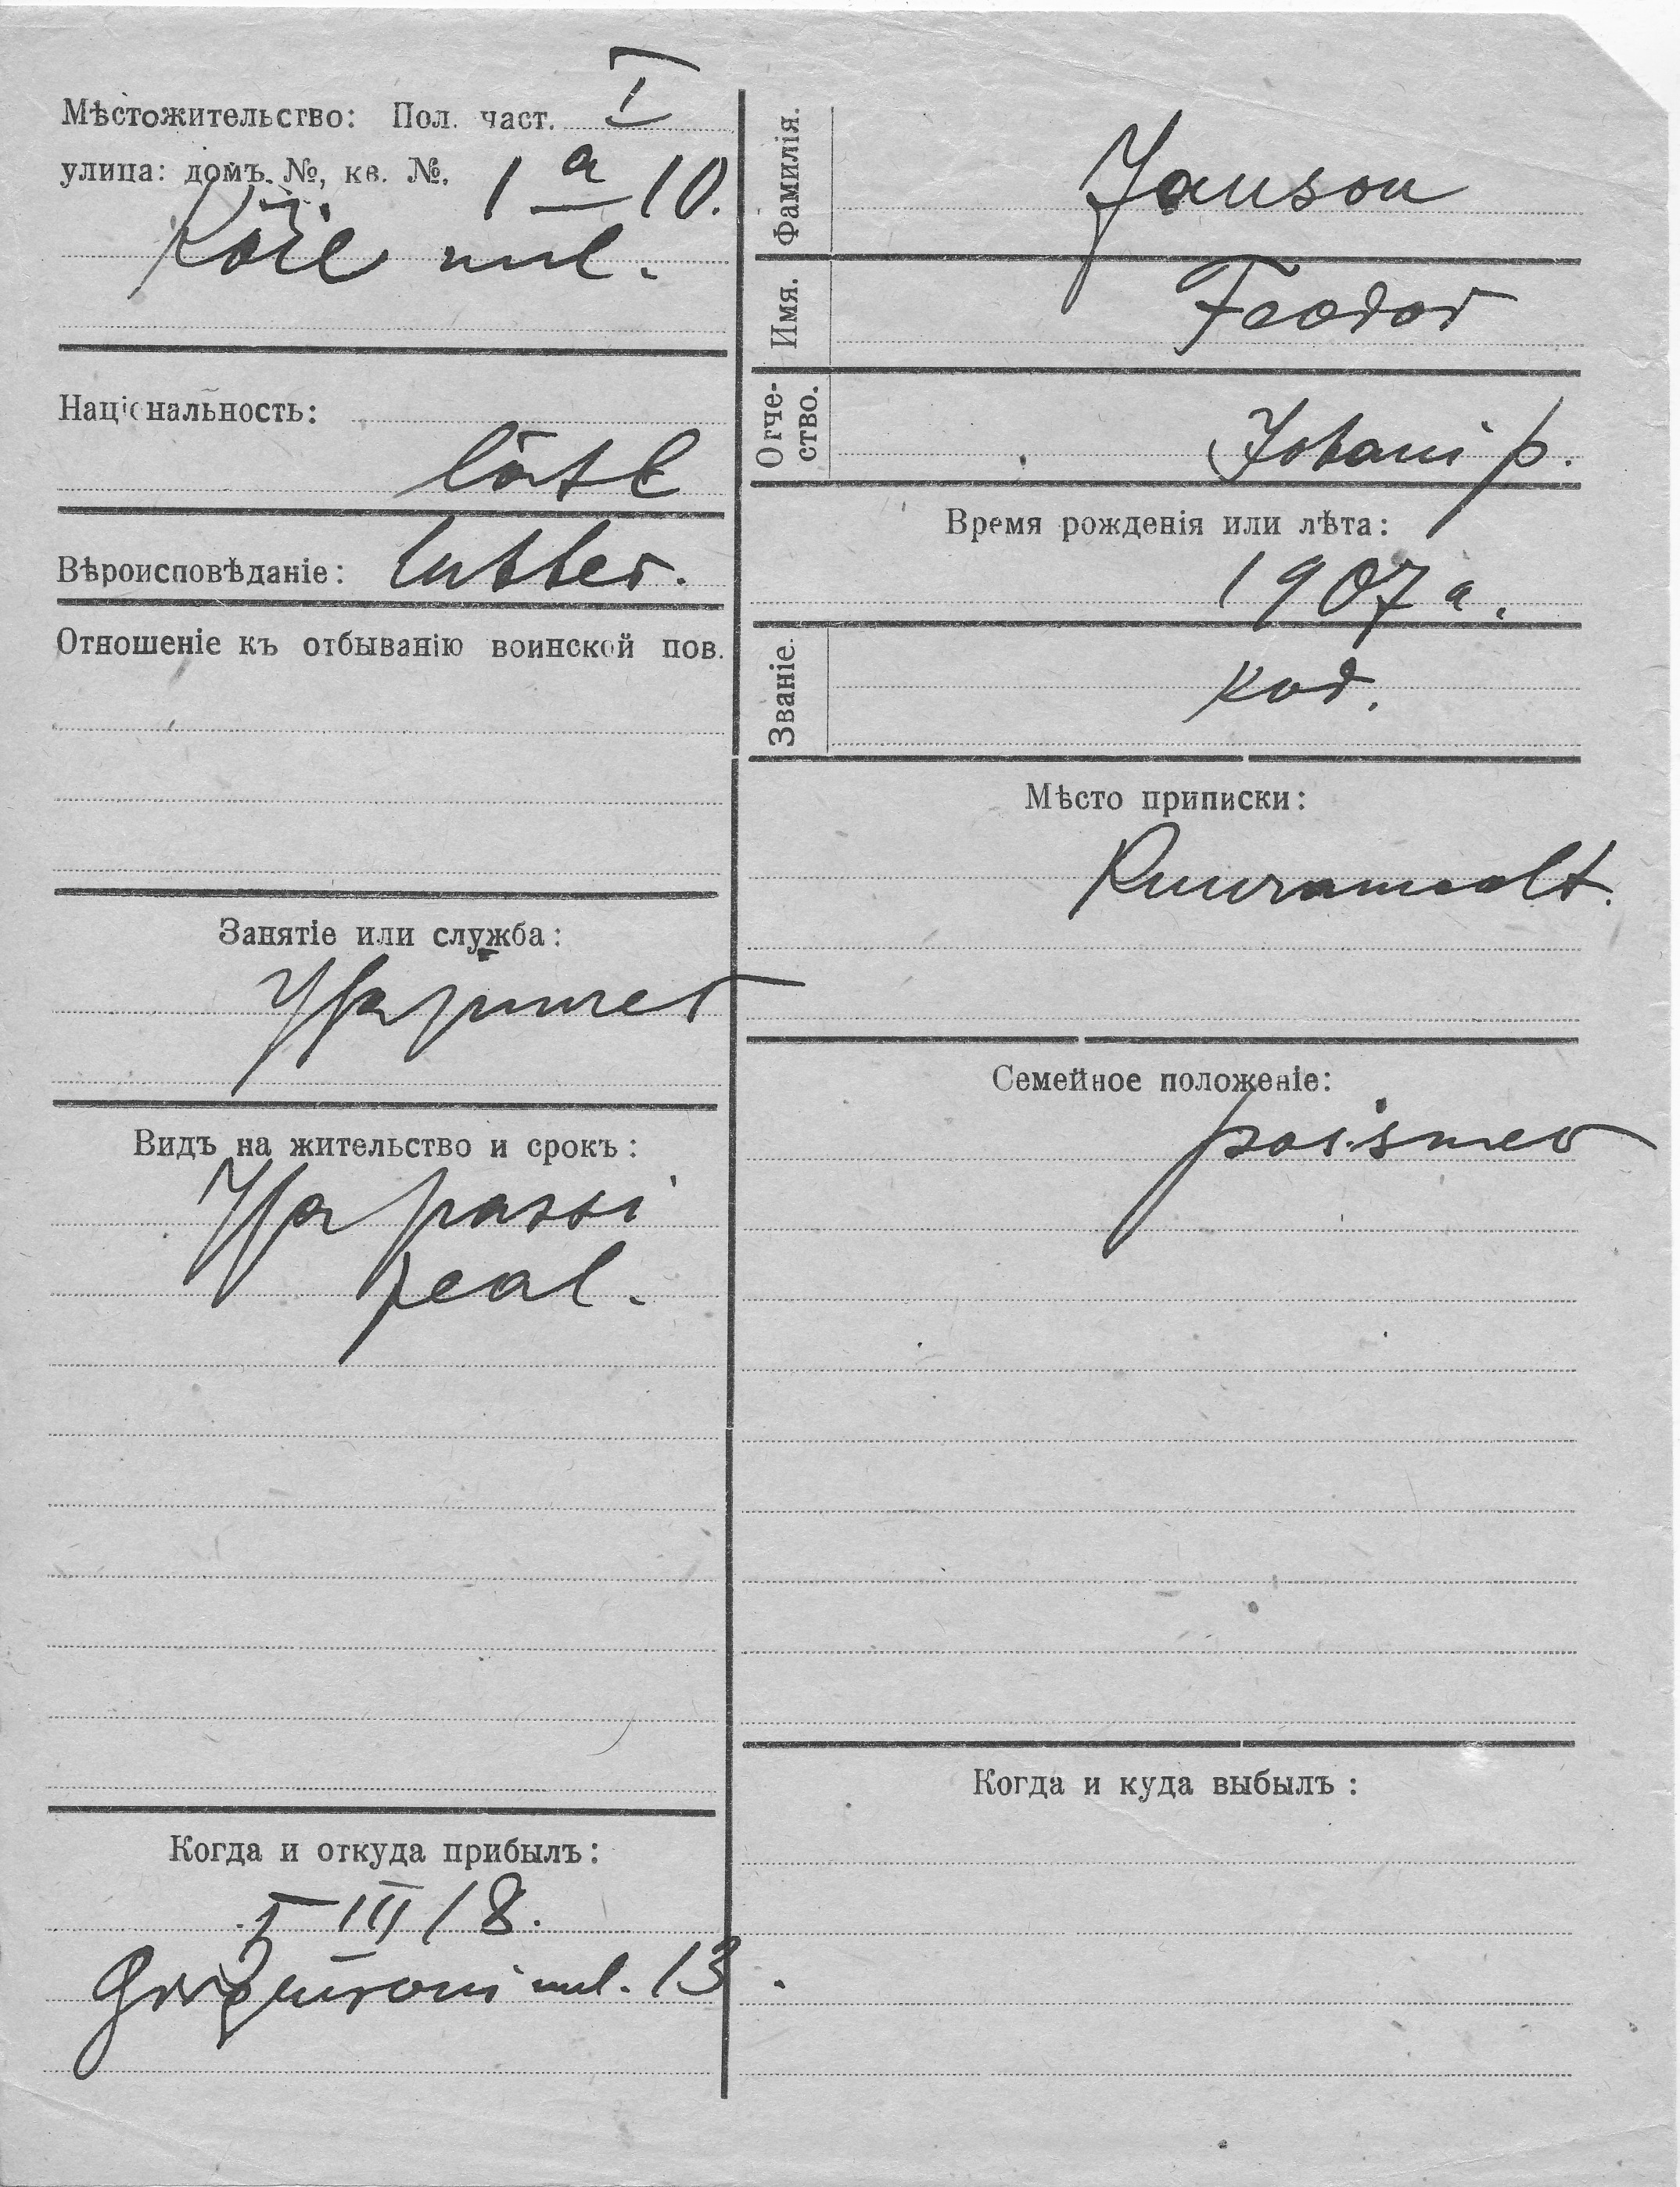 Мѣстожительство: Пол. част. I
улица: домъ. №, кв. №. 1 a 10.
Köie uul.
Національность:
lätl
Вѣроисповѣданіе: luther.
Отношеніе къ отбыванію воинской пов.
Занятіе или служба:
Видъ на жительство и срокъ:
passi
peal.
Когда и откуда прибылъ:
5 III 18.
uul. 13.
Фамилія. Janson
Имя. Feodor
Отчество. Johani p.
Время рожденія или лѣта:
1907 a.
Званіе. kod.
Мѣсто приписки:
Семейное положеніе:
poismes
Когда и куда выбылъ: